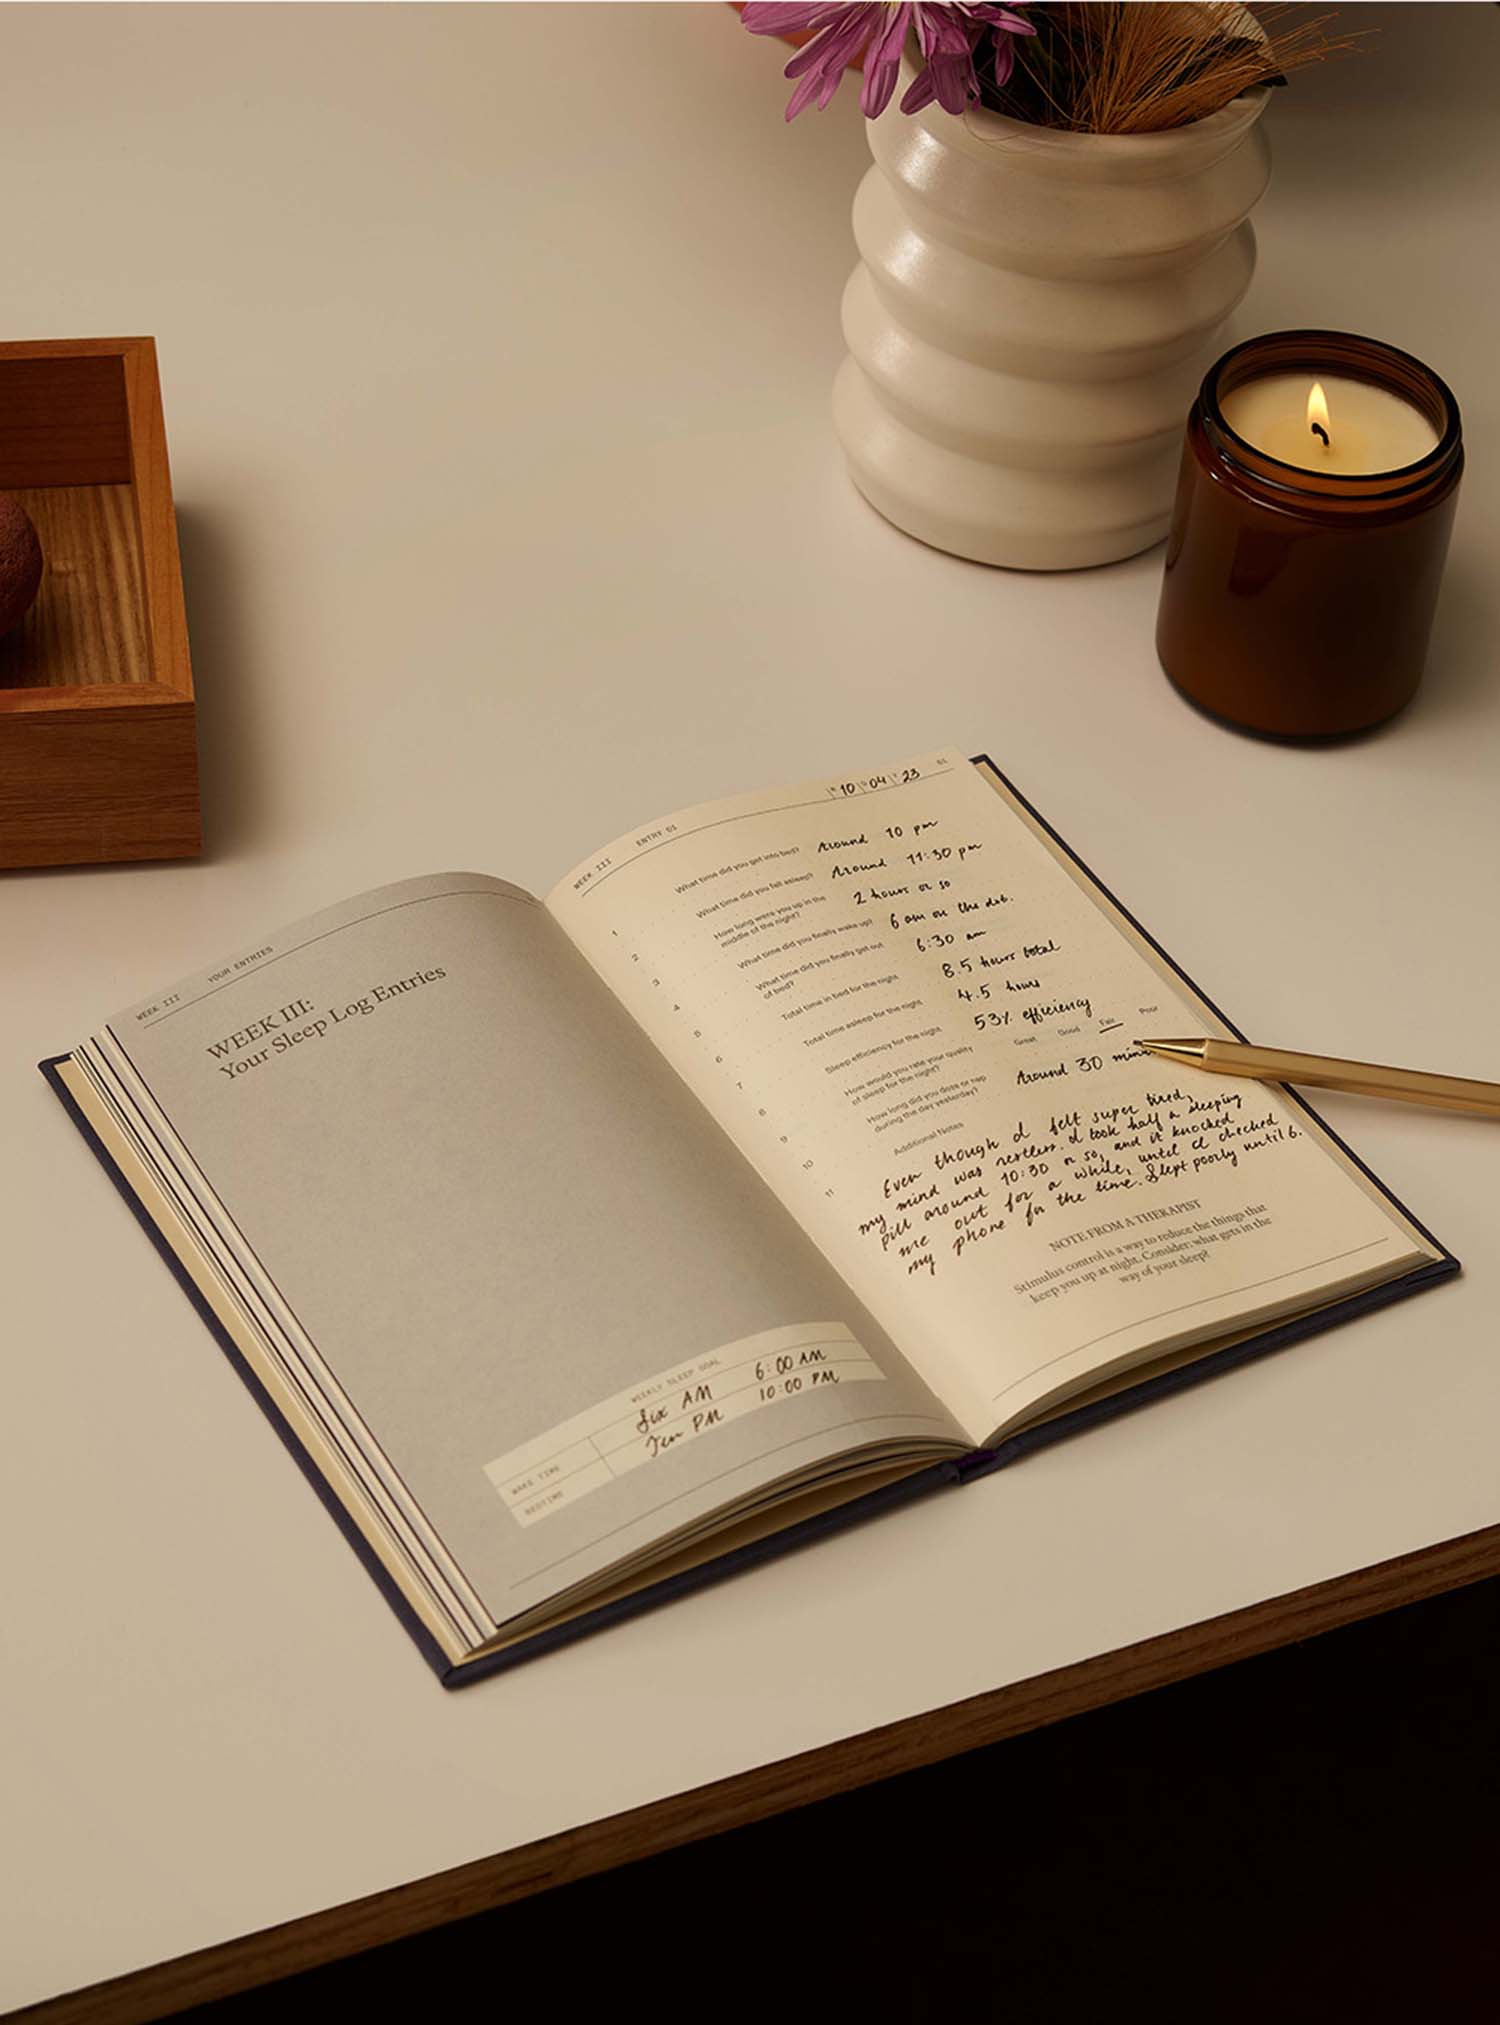 WEEK III YOUR ENTRIES
WEEK III:
Your Sleep Log Entries
WEEKLY SLEEP GOAL
WAKE TIME Six AM 6:00 AM
BEDTIME Ten PM 10:00 PM
WEEK III ENTRY 01 10 04 23 61
1 What time did you get into bed? Around 10 pm
2 What time did you fall asleep? Around 11:30 pm
3 How long were you up in the
middle of the night? 2 hours or so
4 What time did you finally wake up? 6 am on the dot.
5 What time did you finally get out
of bed? 6:30 am
6 Total time in bed for the night 8.5 hours total
7 Total time asleep for the night 4.5 hours
8 Sleep efficiency for the night 53% efficiency
9 How would you rate your quality
of sleep for the night? Great Good Fair Poor
10 How long did you doze or nap
during the day yesterday? Around 30 mins
11 Additional Notes
Even though I felt super tired,
my mind was restless. I took half a sleeping
pill around 10:30 or so, and it knocked
me out for a while, until I checked
my phone for the time. Slept poorly until 6.
NOTE FROM A THERAPIST
Stimulus control is a way to reduce the things that
keep you up at night. Consider: what gets in the
way of your sleep?